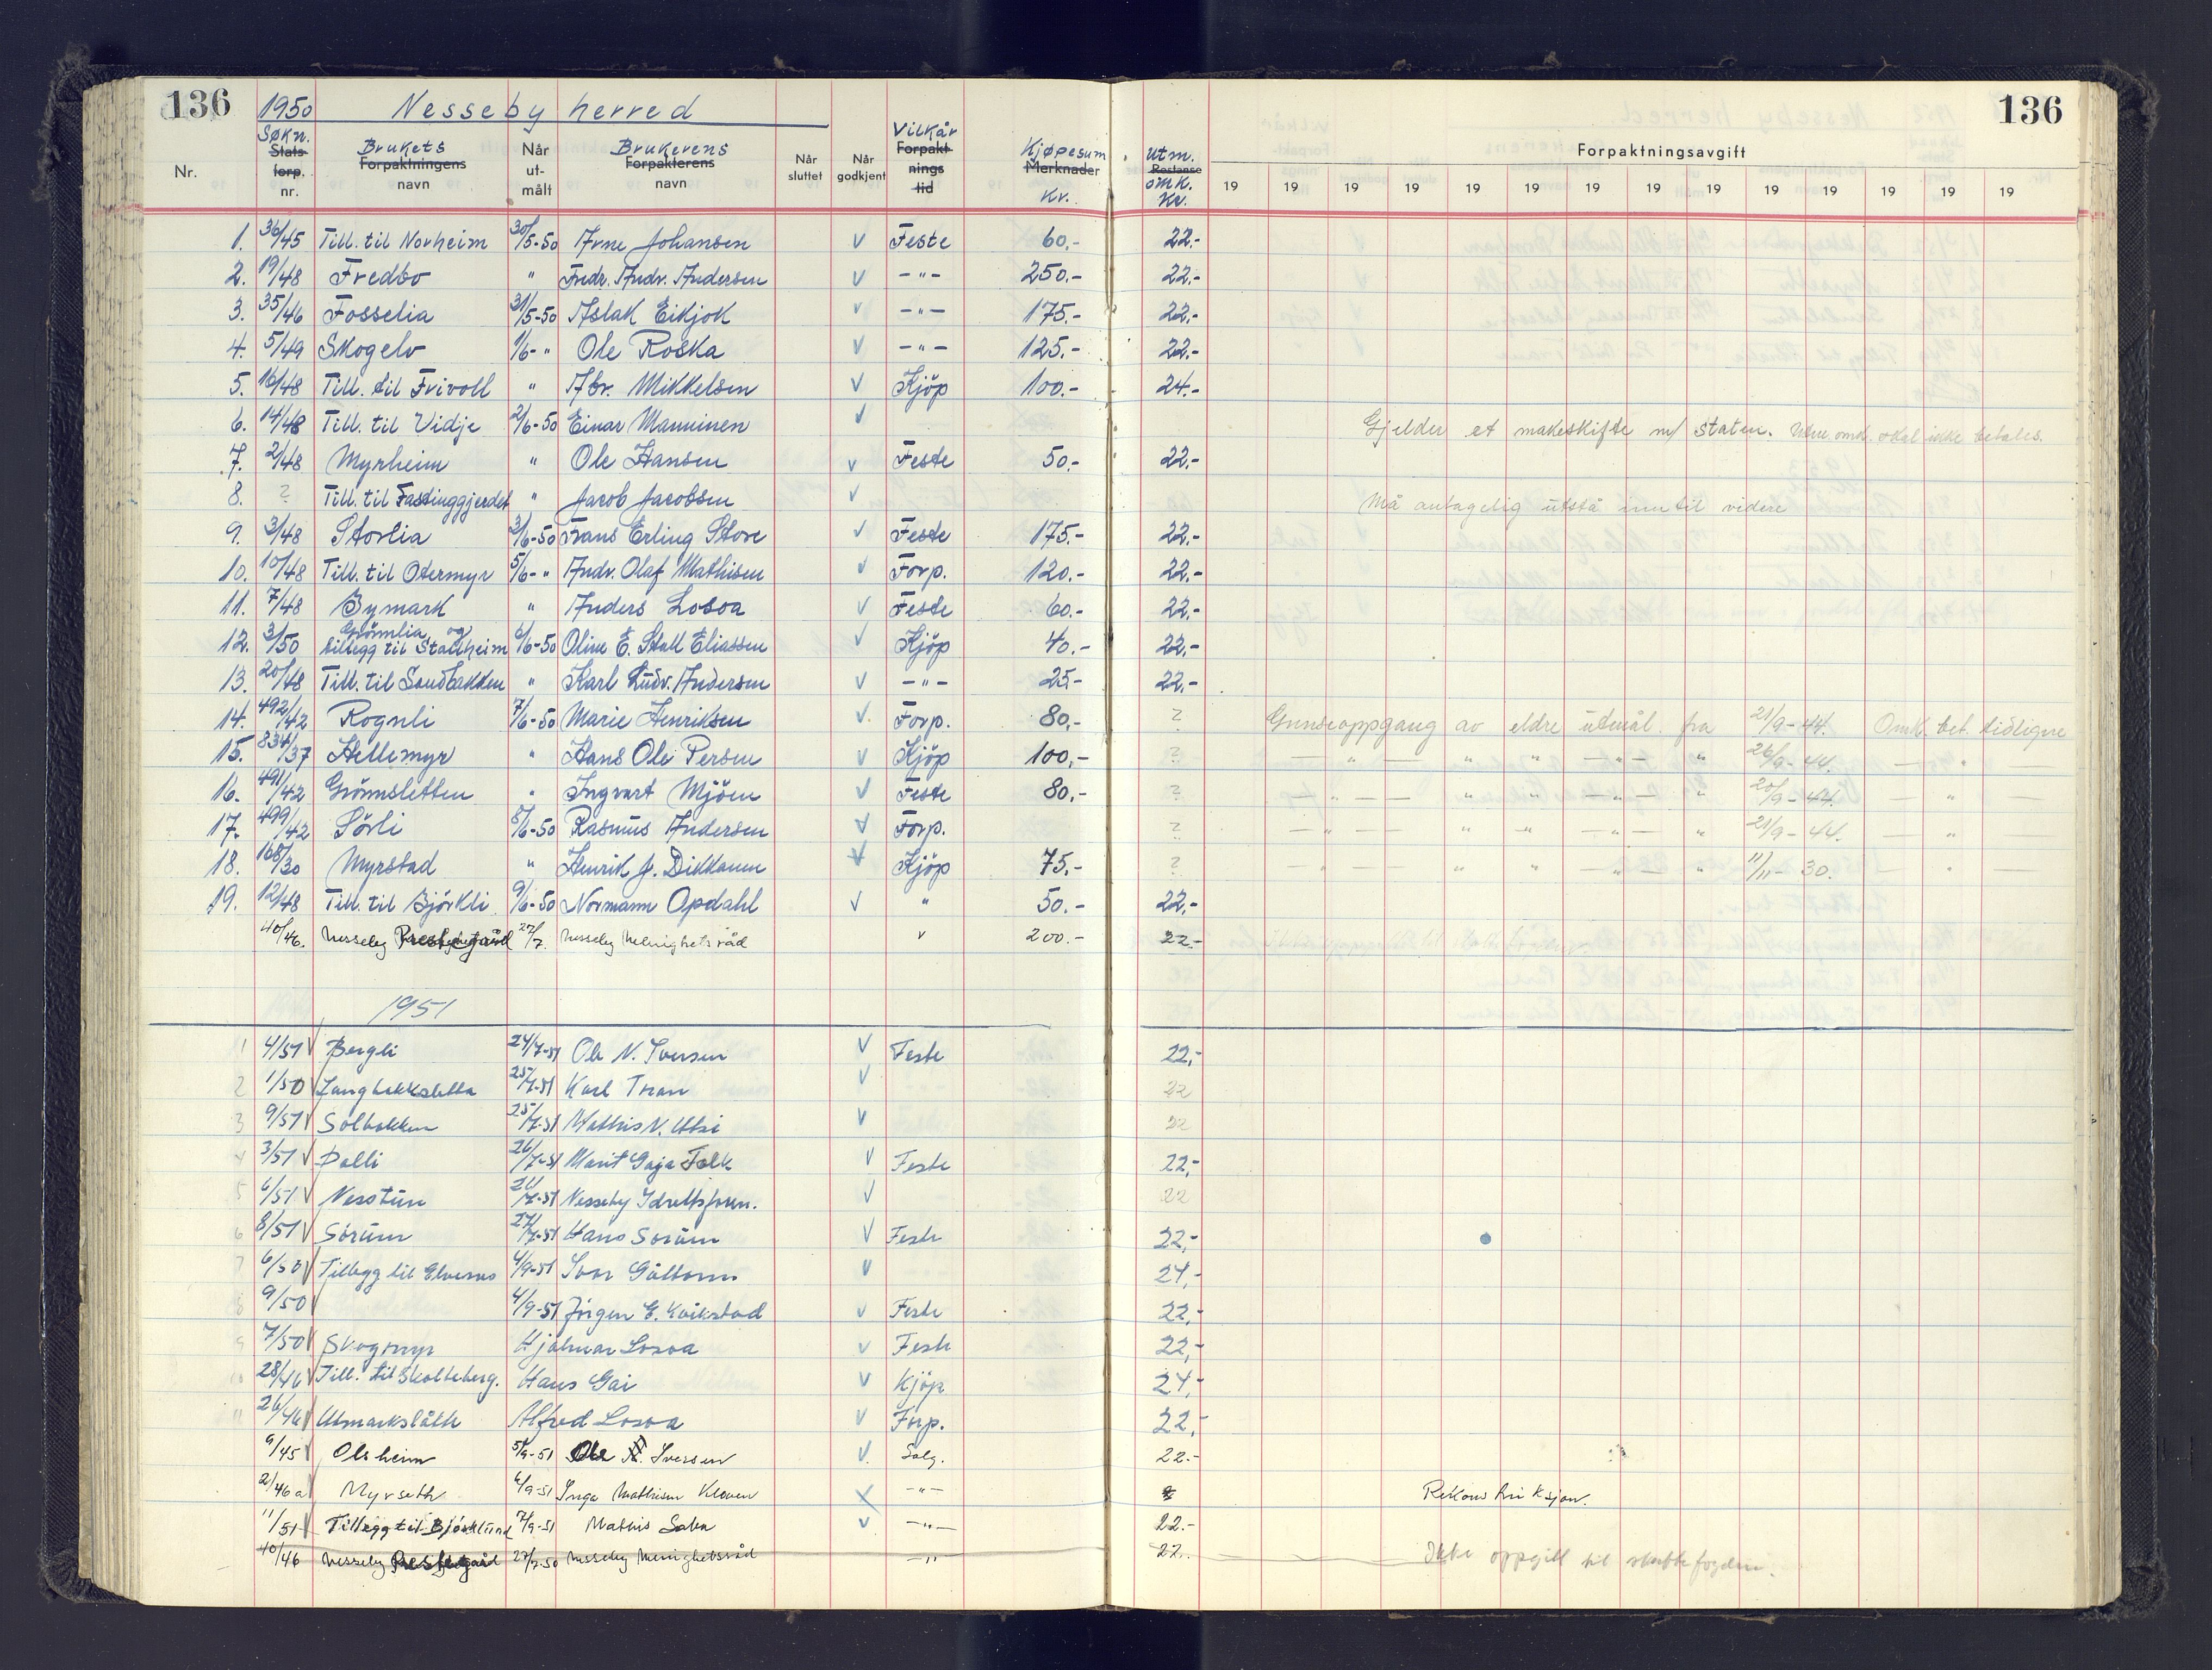 136 1950 Nesseby herred 136
Nr. Søkn. Stats- forp. nr. Brukets Forpaktningens navn Når ut- målt Brukerens Forpakterens navn Når sluttet Når godkjent Vilkår Forpakt- nings tid Kjøpesum Merknader Kr. Utm. Restanse omk. Kr. Forpaktningsavgift
19 19 19 19 19 19 19 19 19 19 19 19 19 19
1. 36/45 Till. til Norheim 30/5-50 Arne Johansen V Feste 60.- 22.-
2. 19/48 Fredbo " Fredr. Andr. Andersen V -"- 250.- 22.-
3. 35/46 Fosselia 31/5-50 Aslak Eikjok V -"- 175.- 22.-
4. 5/49 Skogelv 1/6-" Ole Roska V -"- 125.- 22.-
5. 16/48 Till. til Frivoll " Abr. Mikkelsen V Kjöp 100.- 24.-
6. 14/48 Till. til Vidje 2/6-50 Einar Manninen V Gjelder et makeskifte m/ staten. skal ikke betales.
7. 2/48 Myrheim " Ole Hansen V Feste 50.- 22.-
8. ? Till. til Fastinggjerdet " Jacob Jacobsen V Må antagelig utstå inntil videre
9. 3/48 Storlia 3/6-50 Frans Erling Store V Feste 175.- 22.-
10. 10/48 Till. til Otermyr 5/6-" Andr. Olaf Mathisen V Forp. 120.- 22.-
11. 7/48 Bymark " Anders Losoa V Feste 60.- 22.-
12. 3/50 Grönnlia og tillegg til Stallheim 6/6-50 Oline E. Stall Eliassen V Kjöp 40.- 22.-
13. 20/48 Till. til Sandbakken " Karl Ludv. Andersen V -"- 25.- 22.-
14. 492/42 Rognli 7/6-50 Marie Henriksen V. Forp. 80.- ? Grenseoppgang av eldre utmål fra 21/9-44. Omk. bet. tidligere
15. 834/37 Hellemyr " Hans Ole Persen V Kjöp 100,- ? — " — " " — " — " 26/9-44. — " —
16. 491/42 Grönnsletten " Ingvart Mjöen V Feste 80.- ? — " — " " — " — " 20/9-44. — " —
17. 499/42 Sörli 8/6-50 Rasmus Andersen V Forp. ? — " — " " — " — " 21/9-44. — " —
18. 168/30 Myrstad " Henrik J. Dikkanen V Kjöp 75.- ? " " " — " — " 11/11-30. — " —
19. 12/48 Till. til Björkli 9/6-50 Normann Opdahl V " 50.- 22.-
40/46. Nesseby Prestegård 27/7. Nesseby Menighetsråd " 200.- 22.-
1951
1 4/51 V Bergli 24/7-51 Ole N. Iversen V Feste 22,-
2 1/50 V Langbakksletta 25/7-51 Karl Tran V 22
3 9/51 V Solbakken 25/7-51 Mathis N. Utsi V 22
4 3/51 V Dalli 26/7-51 Marit Gaja Falk V Feste 22,-
5 6/51 V Nesstun /7-51 Nesseby Idrettsforen. V 22
6 8/51 V Sörum 27/7-51 Hans Sörum V Feste 22,-
7 6/50 V Tillegg til Elvenes 4/9-51 Ivar Guttorm V 24,-
8 9/50 4/9-51 Jörgen E. Kvikstad V Feste 22,-
9 7/50 V Skogmyr Hjalmar Losoa V Feste 22,-
10 28/46 V Till. til Skolteberg. Hans Gai V Kjöp 24,-
11 26/46 V Utmarkslått Alfred Losoa V Forp. 22,-
9/45 Olsheim 5/9-51 Ole N. Iversen V. Salg. 22.-
2/46 a Myrseth 6/9-51 Inga Mathisen Kloven -"- Rekonstruksjon.
11/51 Tillegg til Björklund 7/9-51 Mathis Saba V -"- 22.-
40/46 Nesseby Prestegård 27/7-50 Nesseby Menighetsråd -"- 22.- Ikke oppgitt til skattefogden.